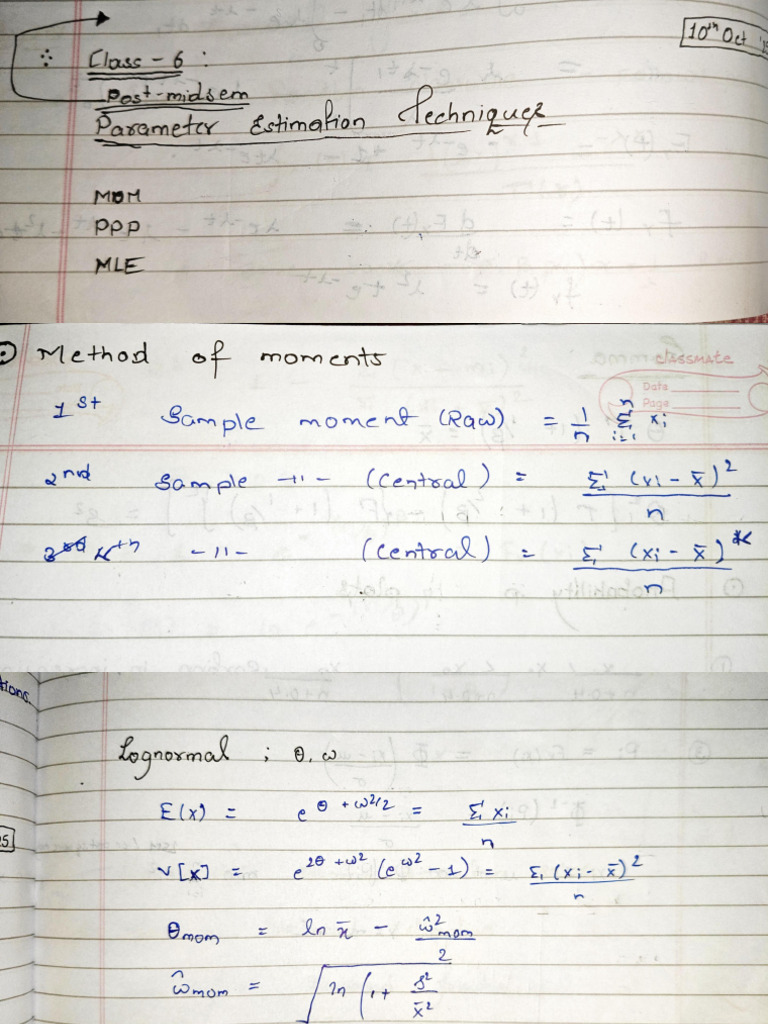 10th Oct
∴ Class - 6 :
Post-midsem
Parameter Estimation Techniques
MOM
PPP
MLE
Method of moments
classmate
Date
Page
1st Sample moment (Raw) = 1/n Σ_{i=1}^{n} xi
2nd Sample -11- (Central) = Σ (xi - x̄)^2 / n
Kth -11- (Central) = Σ (xi - x̄)^K / n
tions.
Lognormal ; θ, ω
E(x) = e^{θ + ω²/2} = Σ xi / n
V[x] = e^{2θ + ω²} (e^{ω²} - 1) = Σ (xi - x̄)^2 / n
θmom = ln x̄ - ω̂²mom / 2
ω̂mom = √ ln (1 + s²/x̄²